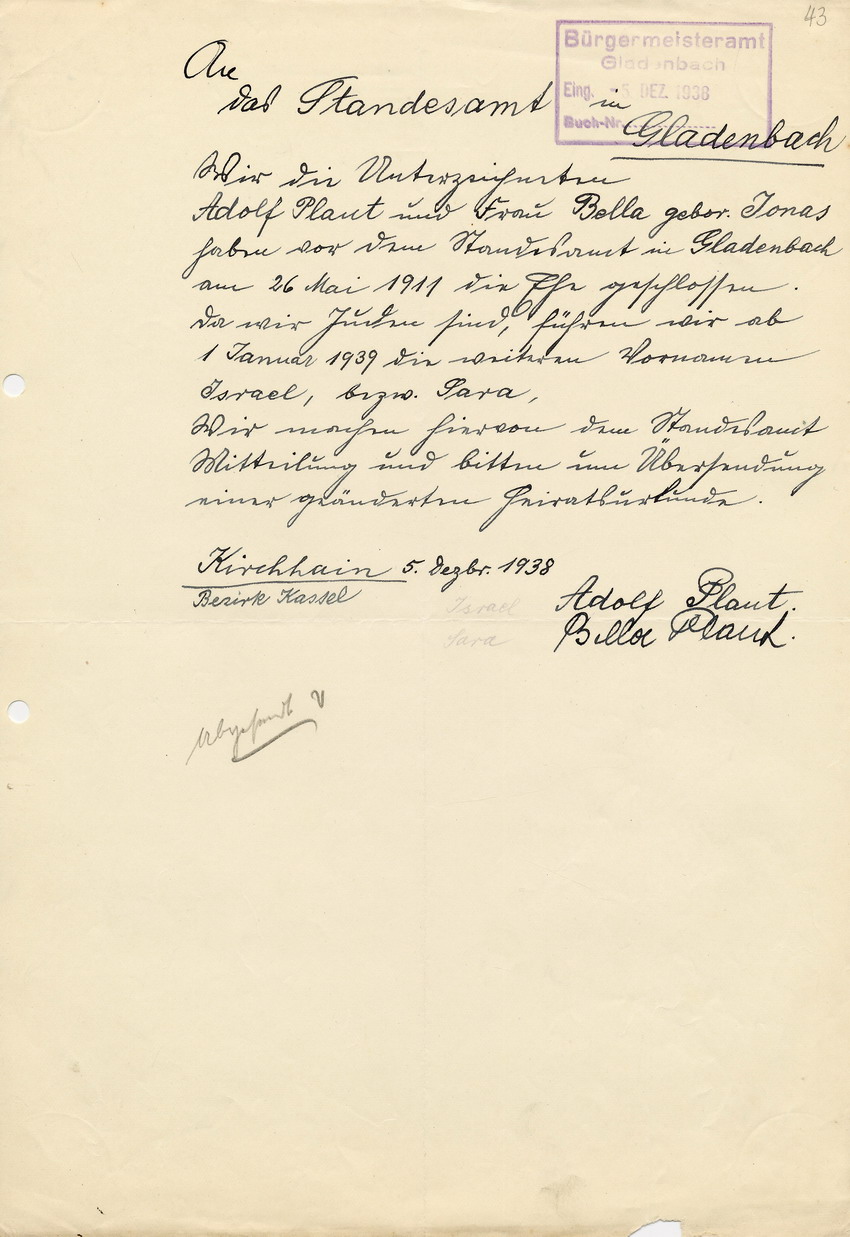 43
Bürgermeisteramt
Gladenbach
Eing. - 5. DEZ. 1938
Buch-Nr.
An
das Standesamt in
Gladenbach
Wir die Unterzeichneten
Adolf Plaut und Frau Bella gebor. Jonas
haben vor dem Standesamt in Gladenbach
am 26 Mai 1911 die Ehe geschlossen.
Da wir Juden sind, führen wir ab
1 Januar 1939 die weiteren Vornamen
Israel, bezw. Sara,
Wir machen hiervon dem Standesamt
Mitteilung und bitten um Übersendung
einer geänderten Heiratsurkunde.
Kirchhain 5. Dezbr. 1938
Bezirk Kassel
Israel Adolf Plaut.
Sara Bella Plaut.
Abgesandt